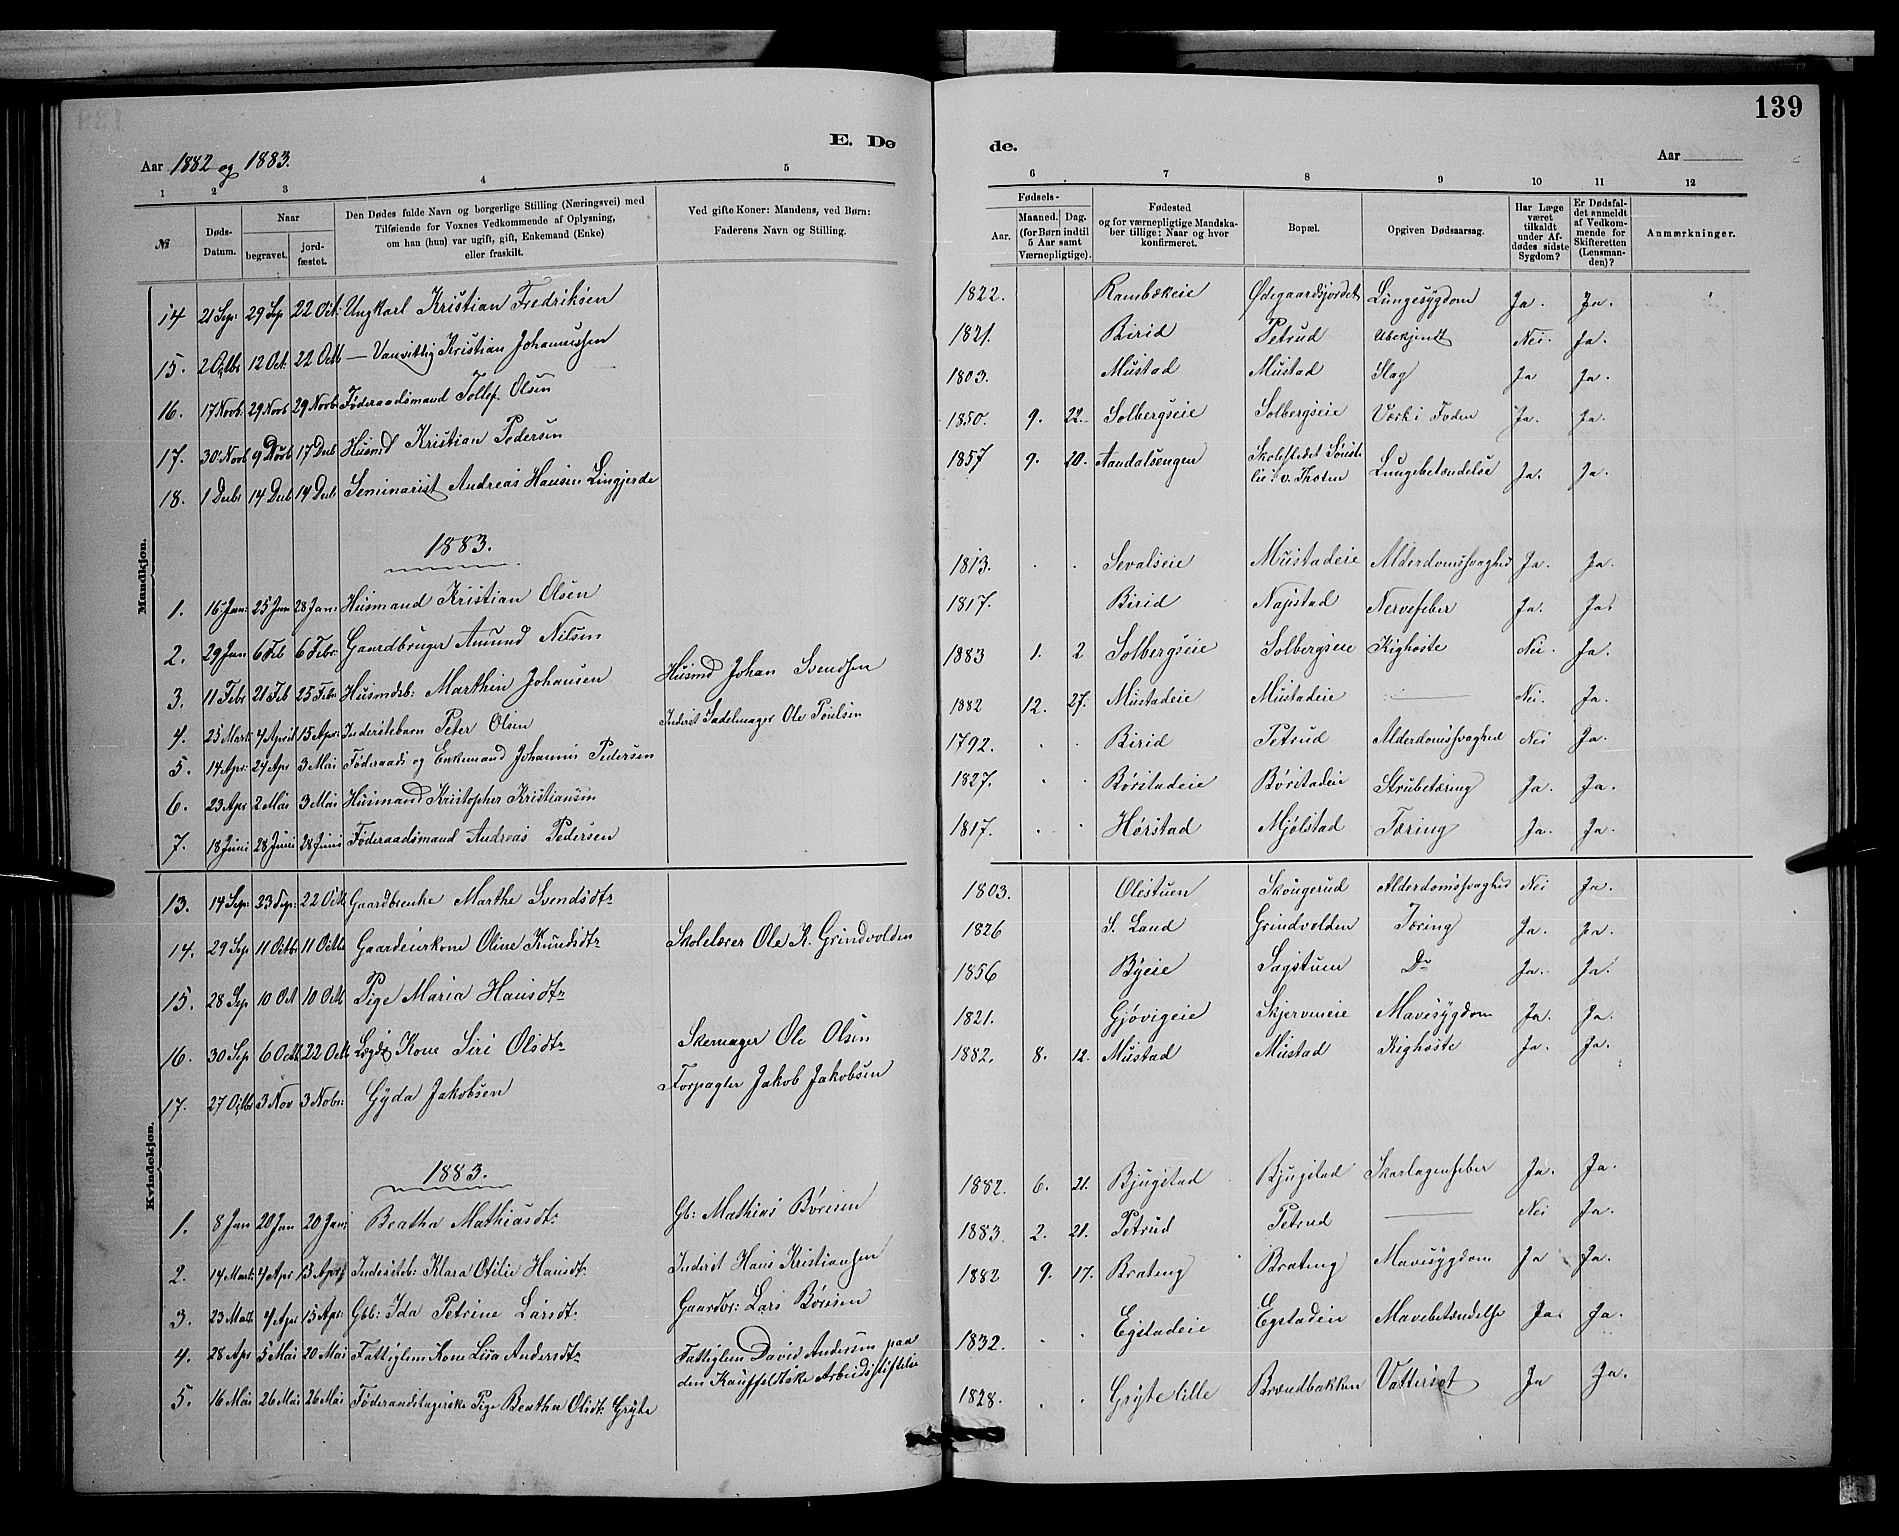 139
E. Dø
de.
Aar 1882 og 1883.
Aar
1 2 3 4 5 6 7 8 9 10 11 12
№
Døds-Datum.
Naar
begravet.
jord-fæstet.
Den Dødes fulde Navn og borgerlige Stilling (Næringsvei) med
Tilføiende for Voxnes Vedkommende af Oplysning,
om han (hun) var ugift, gift, Enkemand (Enke)
eller fraskilt.
Ved gifte Koner: Mandens, ved Børn:
Faderens Navn og Stilling.
Fødsels-
Aar.
Maaned. Dag.
(for Børn indtil
5 Aar samt
Værnepligtige).
Fødested
og for værnepligtige Mandska-
ber tillige: Naar og hvor
konfirmeret.
Bopæl.
Opgiven Dødsaarsag.
Har Læge
været
tilkaldt
under Af-
dødes sidste
Sygdom?
Er Dødsfal-
det anmeldt
af Vedkom-
mende for
Skifteretten
(Lensman-
den)?
Anmærkninger.
Mandkjøn.
14 21 Sep: 29 Sep 22 Oct: Ungkarl Kristian Fredriksen 1822. Rambækeie Ødegaardsjordet Lungesygdom Ja. Ja.
15. 2 Octbr 12 Oct. 22 Octb — Vanvittig Kristian Johannessen 1821. Birid Petrud Ubekjendt Nei. Ja.
16. 17 Novb. 29 Novb 29 Novb Føderaadsmand Tollef Olsen 1803. Mustad Mustad Slag Ja Ja.
17. 30 Novb 9 Decb 17 Decb Husmd Kristian Pedersen 1850. 9. 22. Solbergseie Solbergseie Værk i Foden Ja. Ja.
18. 1 Decbr 14 Decb 14 Decb Seminarist Andreas Hansen Lingjerde 1857 9. 20. Aandalsengen Skolestedet lie: v. Thoten Lungebetændelse Ja. Ja.
1883.
1. 16 Jan: 25 Jan 28 Jan: Husmand Kristian Olsen 1813. Sevalseie Mustadeie Alderdomssvaghed Ja. Ja.
2. 29 Jan 6 Feb 6 Febr: Gaardbruger Amund Nilsen 1817. Birid Najstad Nervefeber Ja. Ja.
3. 11 Febr 21 Feb 25 Febr Husmdsb: Marthin Johansen Husmd Johan Svendsen 1883 1. 2 Solbergseie Solbergseie Kighoste Nei. Ja.
4. 25 Mart 4 April 15 Apr: Inderstebarn Peter Olsen Inderst Sadelmager Ole Poulsen 1882 12. 27. Mustadeie Mustadeie — Nei. Ja.
5. 14 Apr: 24 Apr 3 Mai Føderaads og Enkemand Johannes Pedersen 1792. Birid Petrud Alderdomssvaghed Nei Ja.
6. 23 Apr 2 Mai 3 Mai Husmand Kristopher Kristiansen 1827. Børstadeie Børstadeie Strubetæring Ja. Ja.
7. 18 Juni 28 Juni 28 Juni Føderaadsmand Andreas Pedersen 1817. Hørstad Mjølstad Tæring Ja. Ja.
Kvindekjøn.
13. 14 Sep: 23 Sep: 22 Octb Gaardbrenke Marthe Svendsdtr 1803. Olestuen Skougerud Alderdomssvaghed Nei Ja.
14. 29 Sep 11 Octb. 11 Octb. Gaardeierkone Oline Knudsdtr Skolelærer Ole K. Grindvolden 1826 S. Land Grindvolden Tæring Ja. Ja.
15. 28 Sep 10 Oct 10 Octb Pige Maria Hansdtr 1856 Byeie Sagstuen Do Ja. Ja.
16. 30 Sep 6 Octb. 22 Octb Lægds Kone Siri Olsdtr Skomager Ole Olsen 1821. Gjøvigeie Skjerveneie Mavesygdom Ja. Ja.
17. 27 Octbr 3 Nov 3 Nobr: Gyda Jakobsen Forpagter Jakob Jakobsen 1882. 8. 12. Mustad Mustad Kighoste Ja. Ja.
1883.
1. 8 Jan 20 Jan 20 Jan: Beatha Mathiasdt: Gb: Mathias Børesen 1882. 6. 21. Bjugstad Bjugstad Skarlagensfeber Ja. Ja.
2. 14 Mart: 4 Apr 13 Apr: Indersteb: Klara Otilie Hansdt: Inderst Hans Kristiansen 1883. 2. 21. Petrud Petrud — Nei Ja.
3. 23 Mart. 4 Apr 15 Apr: Gbb: Ida Petrine Larsdt: Gaardbr: Lars Børesen 1882 9. 17. Brateng Brateng Mavesygdom Ja Ja.
4. 28 Apr 5 Mai 20 Mai Fattiglem Kone Lisa Andersdtr Fattiglem David Andersen paa den Kauffeldtske Arbeidsstiftelse 1832. Egstadeie Egstadeie Mavebetændelse Ja. Ja.
5. 16 Mai 26 Mai 26 Mai Føderaadstagerske Pige Beatha Olsdt: Gryte 1828. Gryte lille Brændbakken Vattersot Ja Ja.